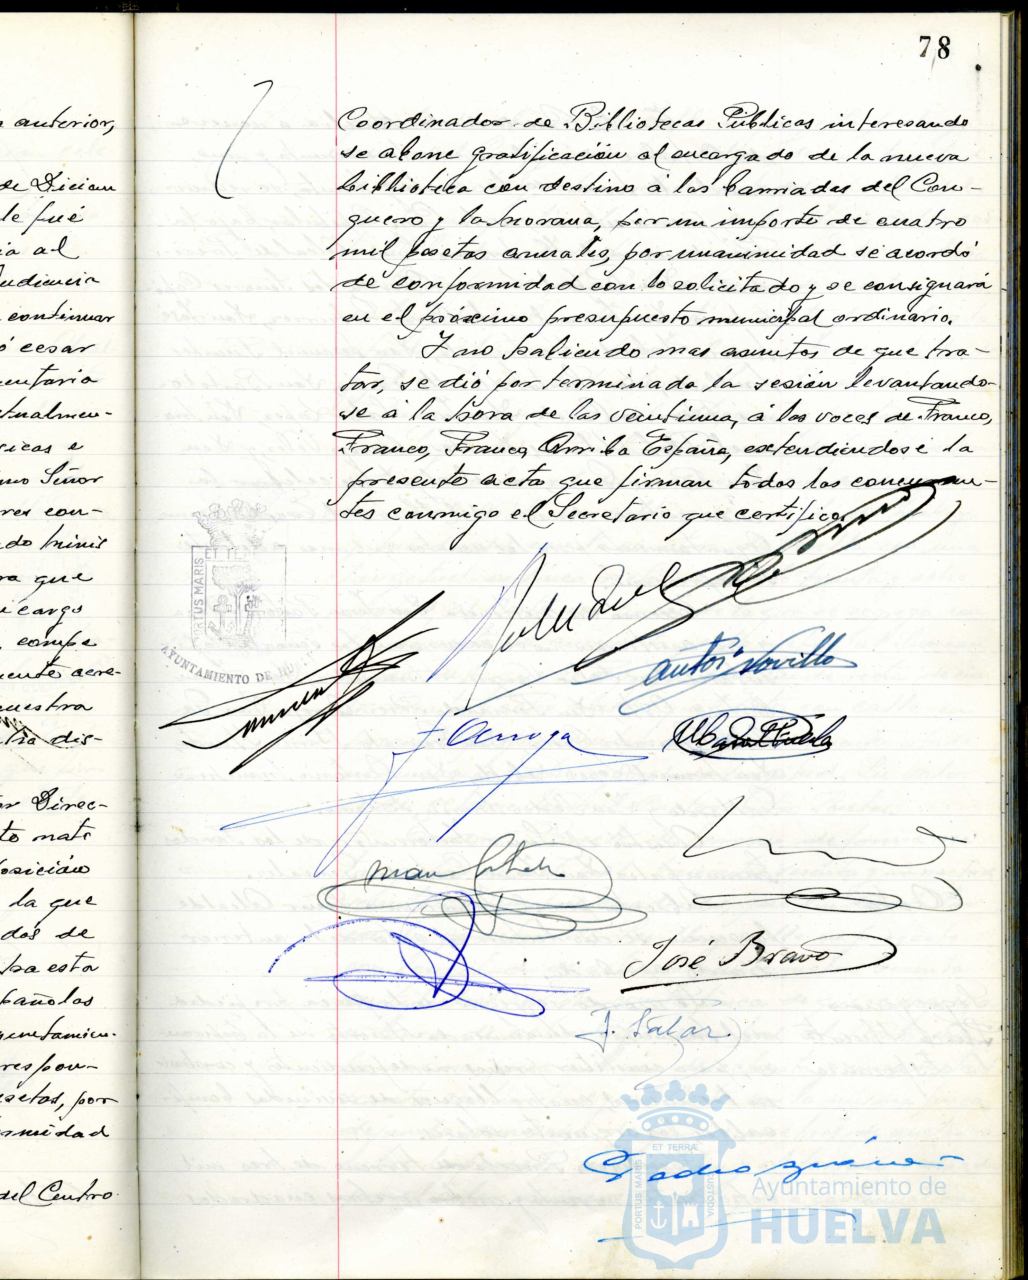 78
anterior,
de Diciem
le fué
ia al
continuar
ó cesar
mentaria
tualmen-
sicas e
mo Señor
res con-
ra que
cargo
compe
mente acre-
nuestra
dis-
or Direc-
posición
la que
dos de
ha esta
pañolas
respon-
setas, por
rmidad
del Centro
Coordinador de Bibliotecas Públicas interesando
se abone gratificación al encargado de la nueva
biblioteca con destino á las barriadas del Con-
quero y la horana, por un importe de cuatro
mil pesetas anuales, por unanimidad se acordó
de conformidad con lo solicitado y se consignará
en el próximo presupuesto municipal ordinario.
Y no habiendo mas asuntos de que tra-
tar, se dió por terminada la sesión levantando-
se á la hora de las veintiuna, á los voces de Franco,
Franco, Franco, Arriba España, extendiendose la
presente acta que firman todos los concurren-
tes conmigo el Secretario que certifico.
ET TERR
PORTUS MARIS
AYUNTAMIENTO DE HU
Antº Novillo
J. Arroyo
José Bravo
J. Salazar
Pedro
ET TERRA
PORTUS MARIS
CUSTODIA
Ayuntamiento de
HUELVA